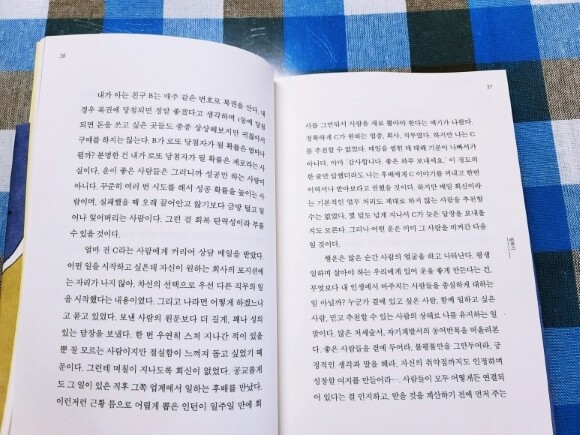 26
내가 아는 친구 B는 매주 같은 번호로 복권을 산다. 내
경우 복권에 당첨되면 정말 좋겠다고 생각하며 1등에 당첨
되면 돈을 쓰고 싶은 곳들도 종종 상상해보지만 귀찮아서
구매를 하지는 않는다. B가 로또 당첨자가 될 확률은 얼마나
될까? 분명한 건 내가 로또 당첨자가 될 확률은 제로라는 사
실이다. 운이 좋은 사람들은 그러니까 성공만 하는 사람이
아니다. 꾸준히 여러 번 시도를 해서 성공 확률을 높이는 사
람이며, 실패했을 때 오래 끌어안고 앓기보다 금방 털고 일
어나 잊어버리는 사람이다. 그런 걸 회복 탄력성이라 부를
수 있을 것이다.
얼마 전 C라는 사람에게 커리어 상담 메일을 받았다.
어떤 일을 시작하고 싶은데 자신이 원하는 회사의 포지션에
는 자리가 나지 않아, 차선의 선택으로 우선 다른 직무의 일
을 시작했다는 내용이었다. 그리고 나라면 어떻게 하겠느냐
고 묻고 있었다. 보낸 사람의 원문보다 더 길게, 꽤나 성의
있는 답장을 보냈다. 한 번 우연히 스쳐 지나간 적이 있을
뿐 잘 모르는 사람이지만 절실함이 느껴져 돕고 싶었기 때
문이다. 그런데 며칠이 지나도록 회신이 없었다. 공교롭게
도 그 일이 있은 직후 그쪽 업계에서 일하는 후배를 만났다.
이런저런 근황 틈으로 어렵게 뽑은 인턴이 일주일 만에 회
27
사를 그만둬서 사람을 새로 뽑아야 한다는 얘기가 나왔다.
정확하게 C가 원하는 업종, 회사, 직무였다. 하지만 나는 C
를 추천할 수 없었다. 메일을 씹힌 데 대해 기분이 나빠서가
아니다. 아마 '감사합니다. 좋은 하루 보내세요.' 이 정도의
한 줄만 답했더라도 나는 후배에게 C 이야기를 꺼내고 한번
이력서나 받아보라고 권했을 것이다. 하지만 메일 회신이라
는 기본적인 업무 처리도 제대로 하지 않는 사람을 추천할
수는 없었다. 몇 달도 넘게 지나서 C가 늦은 답장을 보내올
지도 모른다. 그러나 어떤 운은 이마 그 사람을 비껴간 다음
일 것이다.
행운은 많은 순간 사람의 얼굴을 하고 나타난다. 평생
일하며 살아야 하는 우리에게 있어 운을 좋게 만든다는 건,
무엇보다 내 인생에서 마주치는 사람들을 충실하게 대하는
일 아닐까? 누군가 곁에 있고 싶은 사람, 함께 일하고 싶은
사람, 믿고 추천할 수 있는 사람의 상태로 나를 유지하는 일
말이다. 많은 처세술서, 자기계발서의 동어반복을 떠올려본
다. 좋은 사람들을 곁에 두어라, 불평불만을 그만두어라, 긍
정적인 생각과 말을 해라, 자신의 취약점까지도 인정하며
성장할 여지를 만들어라…. 사람들이 모두 어떻게든 연결되
어 있다는 걸 인지하고, 받을 것을 계산하기 전에 먼저 주는